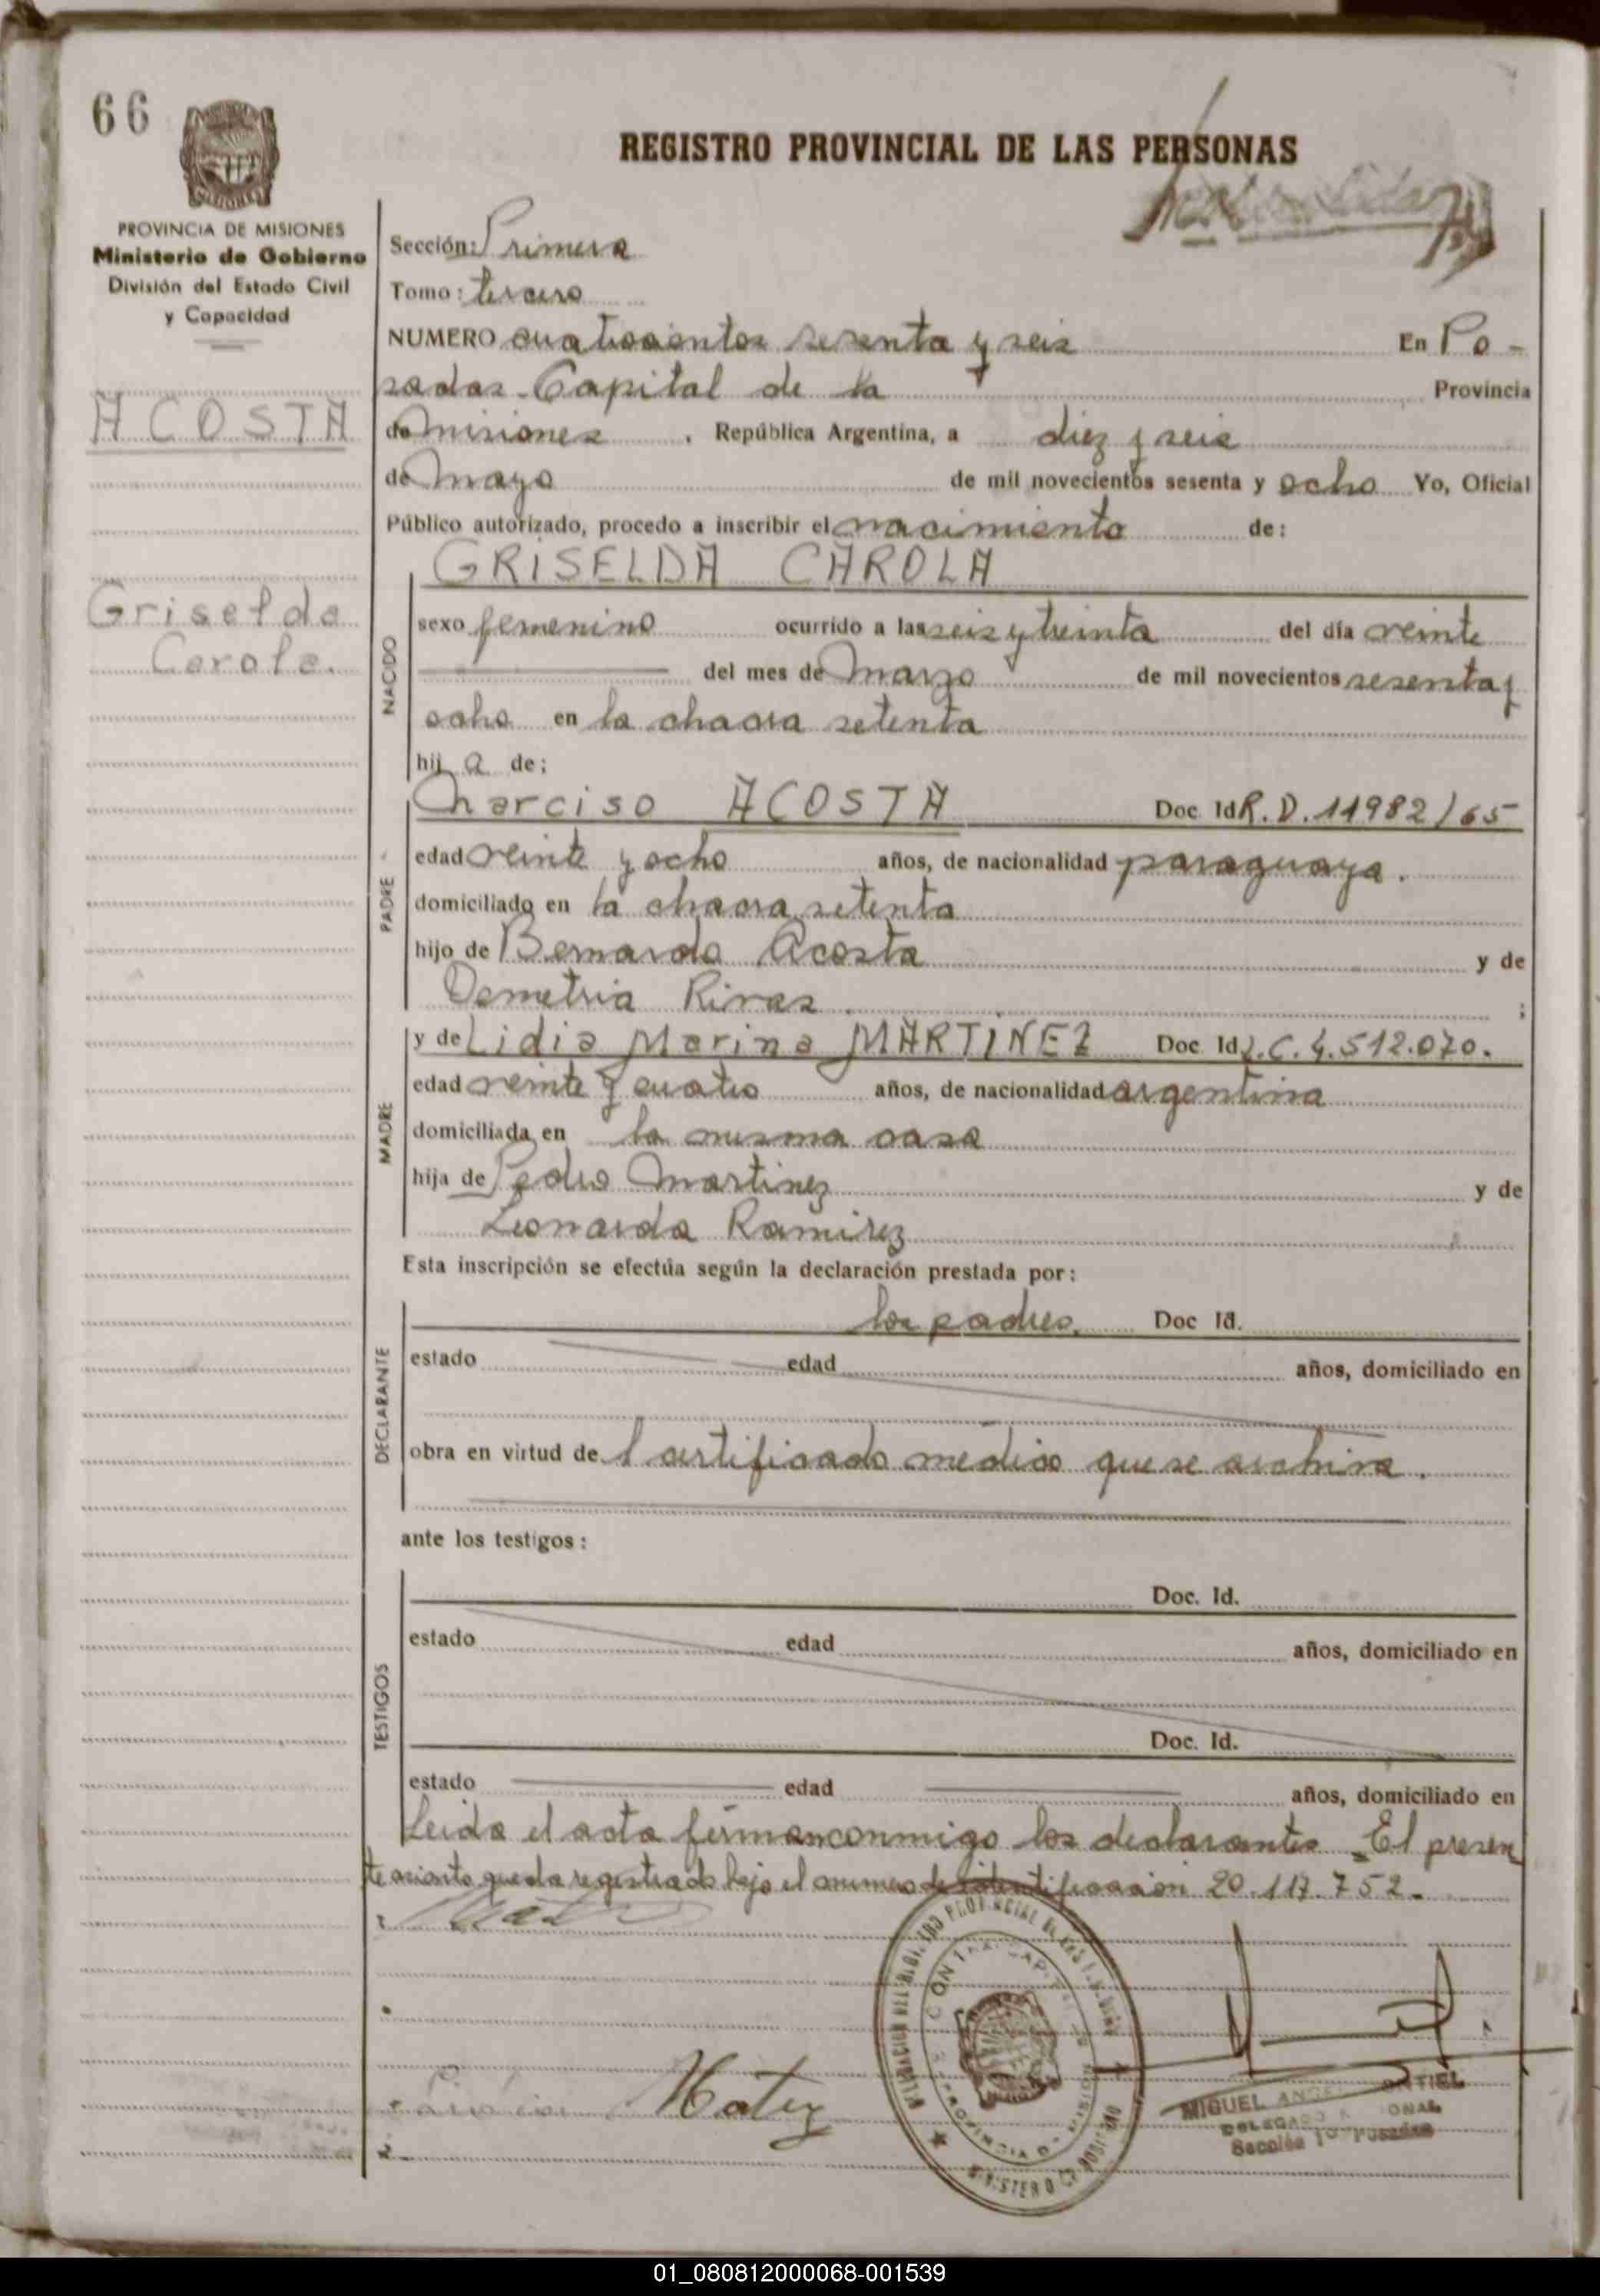 66
REGISTRO PROVINCIAL DE LAS PERSONAS
PROVINCIA DE MISIONES
Ministerio de Gobierno
División del Estado Civil
y Capacidad
ACOSTA
Griselda
Carola.
Sección: Primera
Tomo: tercero
NUMERO cuatrocientos sesenta y seis En Po-
sadas Capital de la Provincia
de Misiones, República Argentina, a diez y seis
de Mayo de mil novecientos sesenta y ocho Yo, Oficial
Público autorizado, procedo a inscribir el nacimiento de:
GRISELDA CAROLA
NACIDO
sexo femenino ocurrido a las seis y treinta del día veinte
del mes de Marzo de mil novecientos sesenta y
ocho en la chacra setenta
hij a de;
PADRE
Narciso ACOSTA Doc. Id R.D. 11982/65
edad veinte y ocho años, de nacionalidad paraguaya.
domiciliado en la chacra setenta
hijo de Bernardo Acosta y de
Demetria Rivas ;
MADRE
y de Lidia Marina MARTINEZ Doc. Id L.C. 4.512.070.
edad veinte y cuatro años, de nacionalidad argentina
domiciliada en la misma casa
hija de Pedro Martinez y de
Leonarda Ramirez
Esta inscripción se efectúa según la declaración prestada por:
DECLARANTE
los padres. Doc Id.
estado edad años, domiciliado en
obra en virtud de l certificado médico que se archiva.
ante los testigos:
TESTIGOS
Doc. Id.
estado edad años, domiciliado en
Doc. Id.
estado edad años, domiciliado en
Leida el acta firman conmigo los declarantes. El presen
te asiento queda registrado bajo el numero de identificación 20.117.752.
MIGUEL
Sección 1º Posadas
01_080812000068-001539